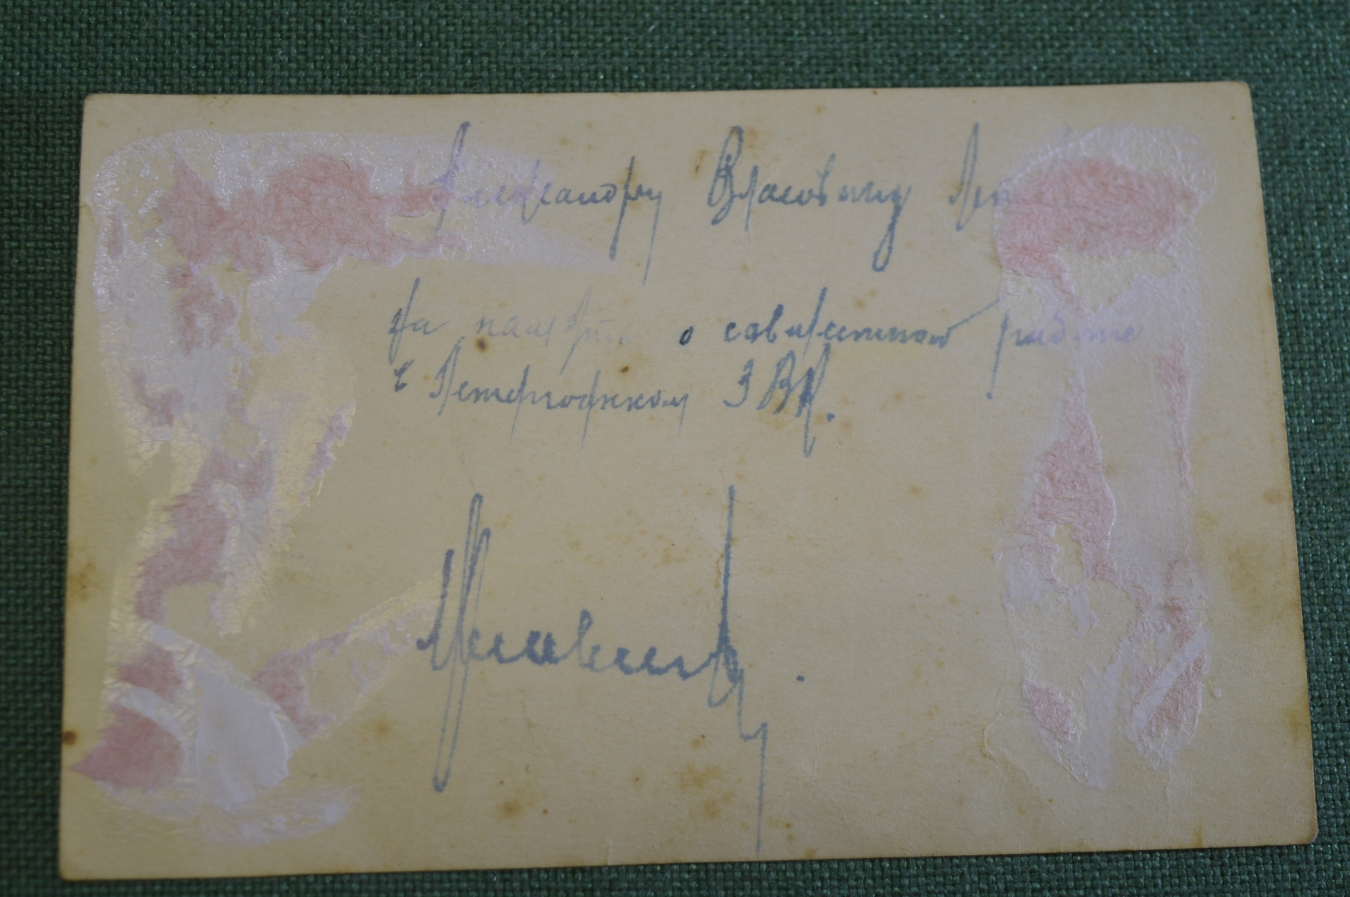 Александру Власовичу
На память о совместной работе
в Петергофском ЗВК.